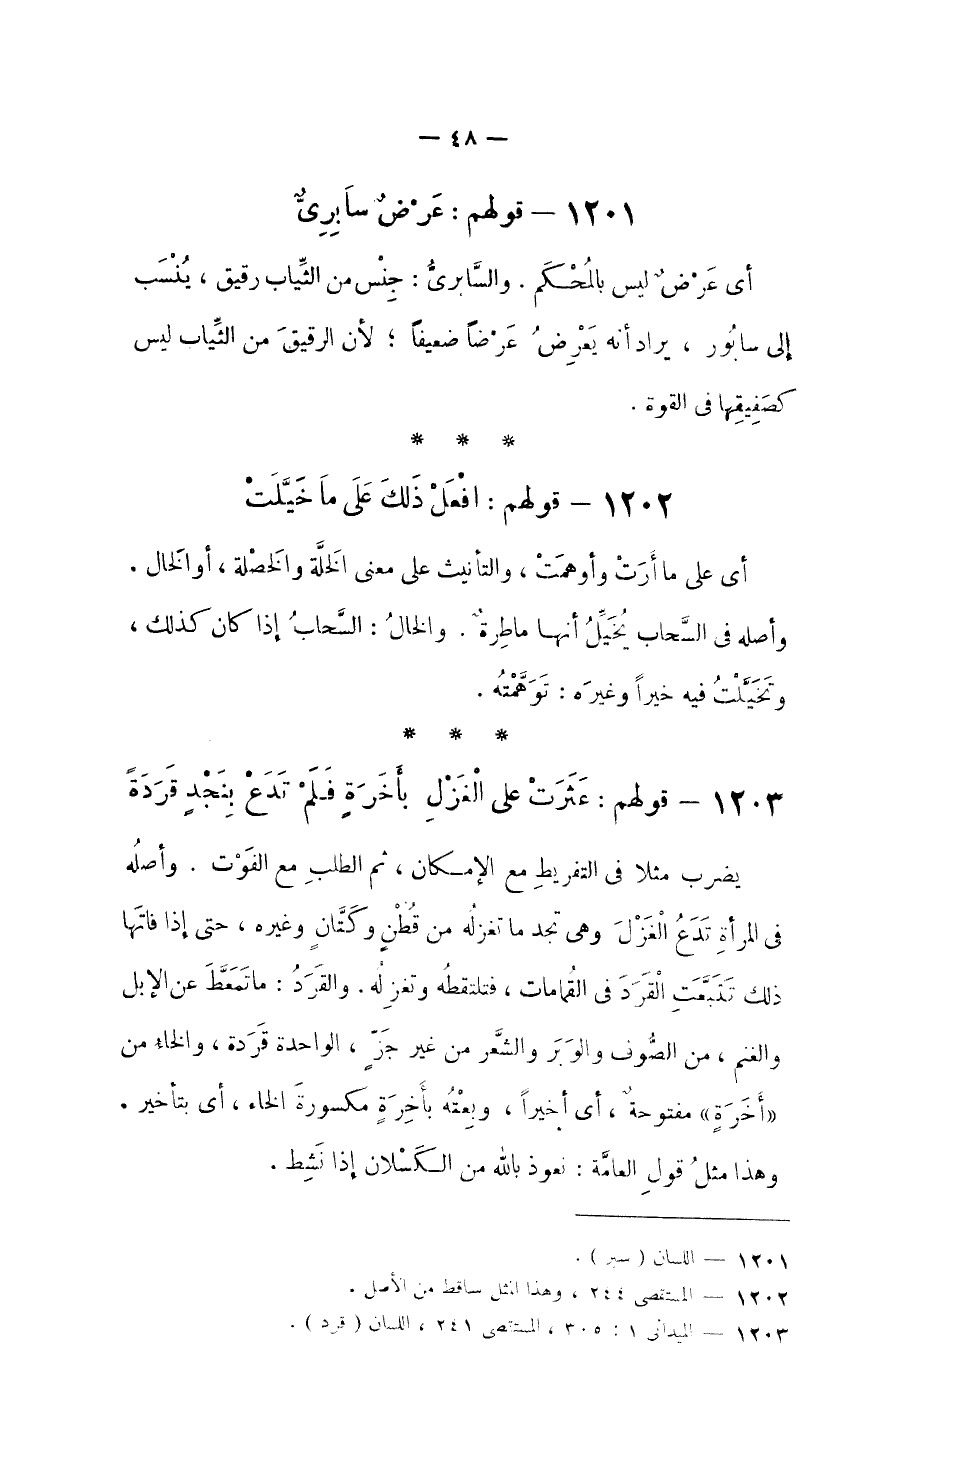 — ٤٨ —
١٢٠١ — قولهم : عَرْضٌ سَابِرِىٌّ
أى عَرْضٌ ليس بالمُحْكَم . والسَّابرىُّ : جِنْس من الثِّياب رقيق ، يُنْسَب
إلى سابُور ، يراد أنه يَعْرِضُ عَرْضاً ضعيفاً ؛ لأن الرقيقَ من الثِّياب ليس
كصَفِيقِها فى القوة .
* * *
١٢٠٢ — قولهم : افْعَلْ ذَلكَ عَلَى مَا خَيَّلَتْ
أى على ما أَرَتْ وأوهمَتْ ، والتأنيث على معنى الخَلَّة والخَصْلة ، أو الخال .
وأصله فى السَّحاب يُخَيِّلُ أنهـا ماطِرةٌ . والخالُ : السَّحابُ إذا كان كذلك ،
وتَخَيَّلْتُ فيه خيراً وغيرَه : تَوَهَّمْتُه .
* * *
١٢٠٣ — قولهم : عَثَرَتْ على الْغَزْلِ بأَخَرَةٍ فَلَمْ تَدَعْ بِنَجْدٍ قَرَدَةً
يضرب مثلا فى التفريطِ مع الإمـكان ، ثم الطلبِ مع الفَوْت . وأصلُه
فى المرأةِ تَدَعُ الْغَزْلَ وهى تجد ما تغزلُه من قُطْنٍ وكَتَّانٍ وغيره ، حتى إذا فاتَها
ذلك تَتَبَّعَتِ الْقَرَدَ فى القُمامات ، فتلتقطُه وتغزِلُه . والقَرَدُ : ما تَمَعَّطَ عن الإبل
والغنم ، من الصُّوف والوَبَر والشعَّر من غير جَزٍّ ، الواحدة قَرَدة ، والخاء من
«أَخَرَةٍ» مفتوحةٌ ، أى أخيراً ، وبِعْتُه بأَخِرَةٍ مكسورةَ الخاء ، أى بتأخير .
وهذا مثلُ قولِ العامَّة : نعوذ بالله من الـكَسْلان إذا نَشِط .
١٢٠١ — اللسان ( سبر ) .
١٢٠٢ — المستقصى ٢٤٤ ، وهذا المثل ساقط من الأصل .
١٢٠٣ — الميدانى ١ : ٣٠٥ ، المستقصى ٢٤١ ، اللسان ( قرد ) .